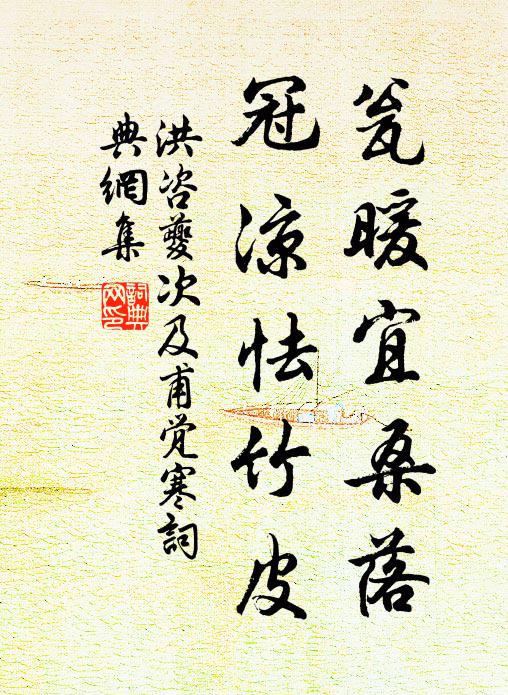 瓮暖宜桑落
冠凉怯竹皮
洪咨夔次及甫觉寒詞
典網集
詞典
网印